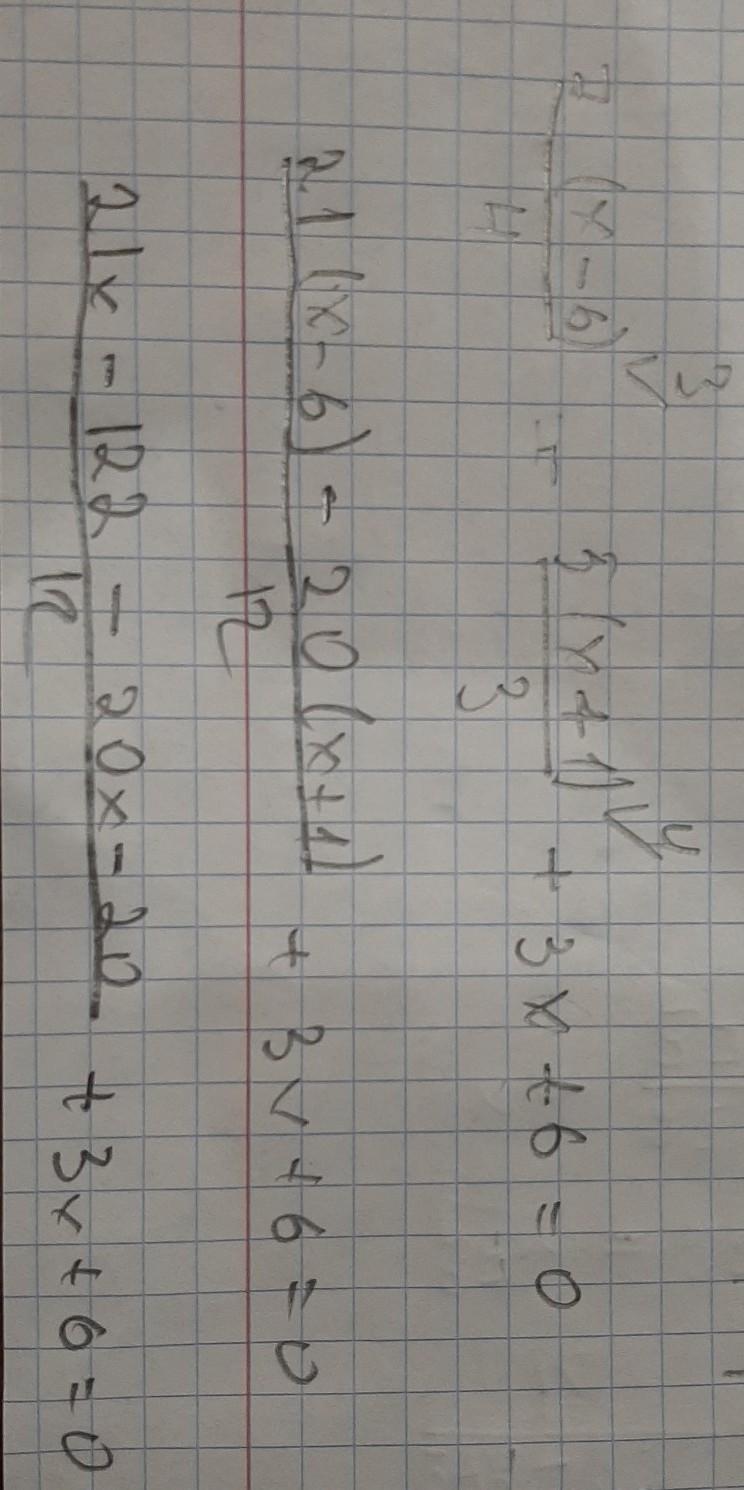 7 (x - 6)\3 / 4 - 5 (x + 1)\4 / 3 + 3x + 6 = 0
21 (x - 6) - 20 (x + 1) / 12 + 3x + 6 = 0
21x - 122 - 20x - 20 / 12 + 3x + 6 = 0